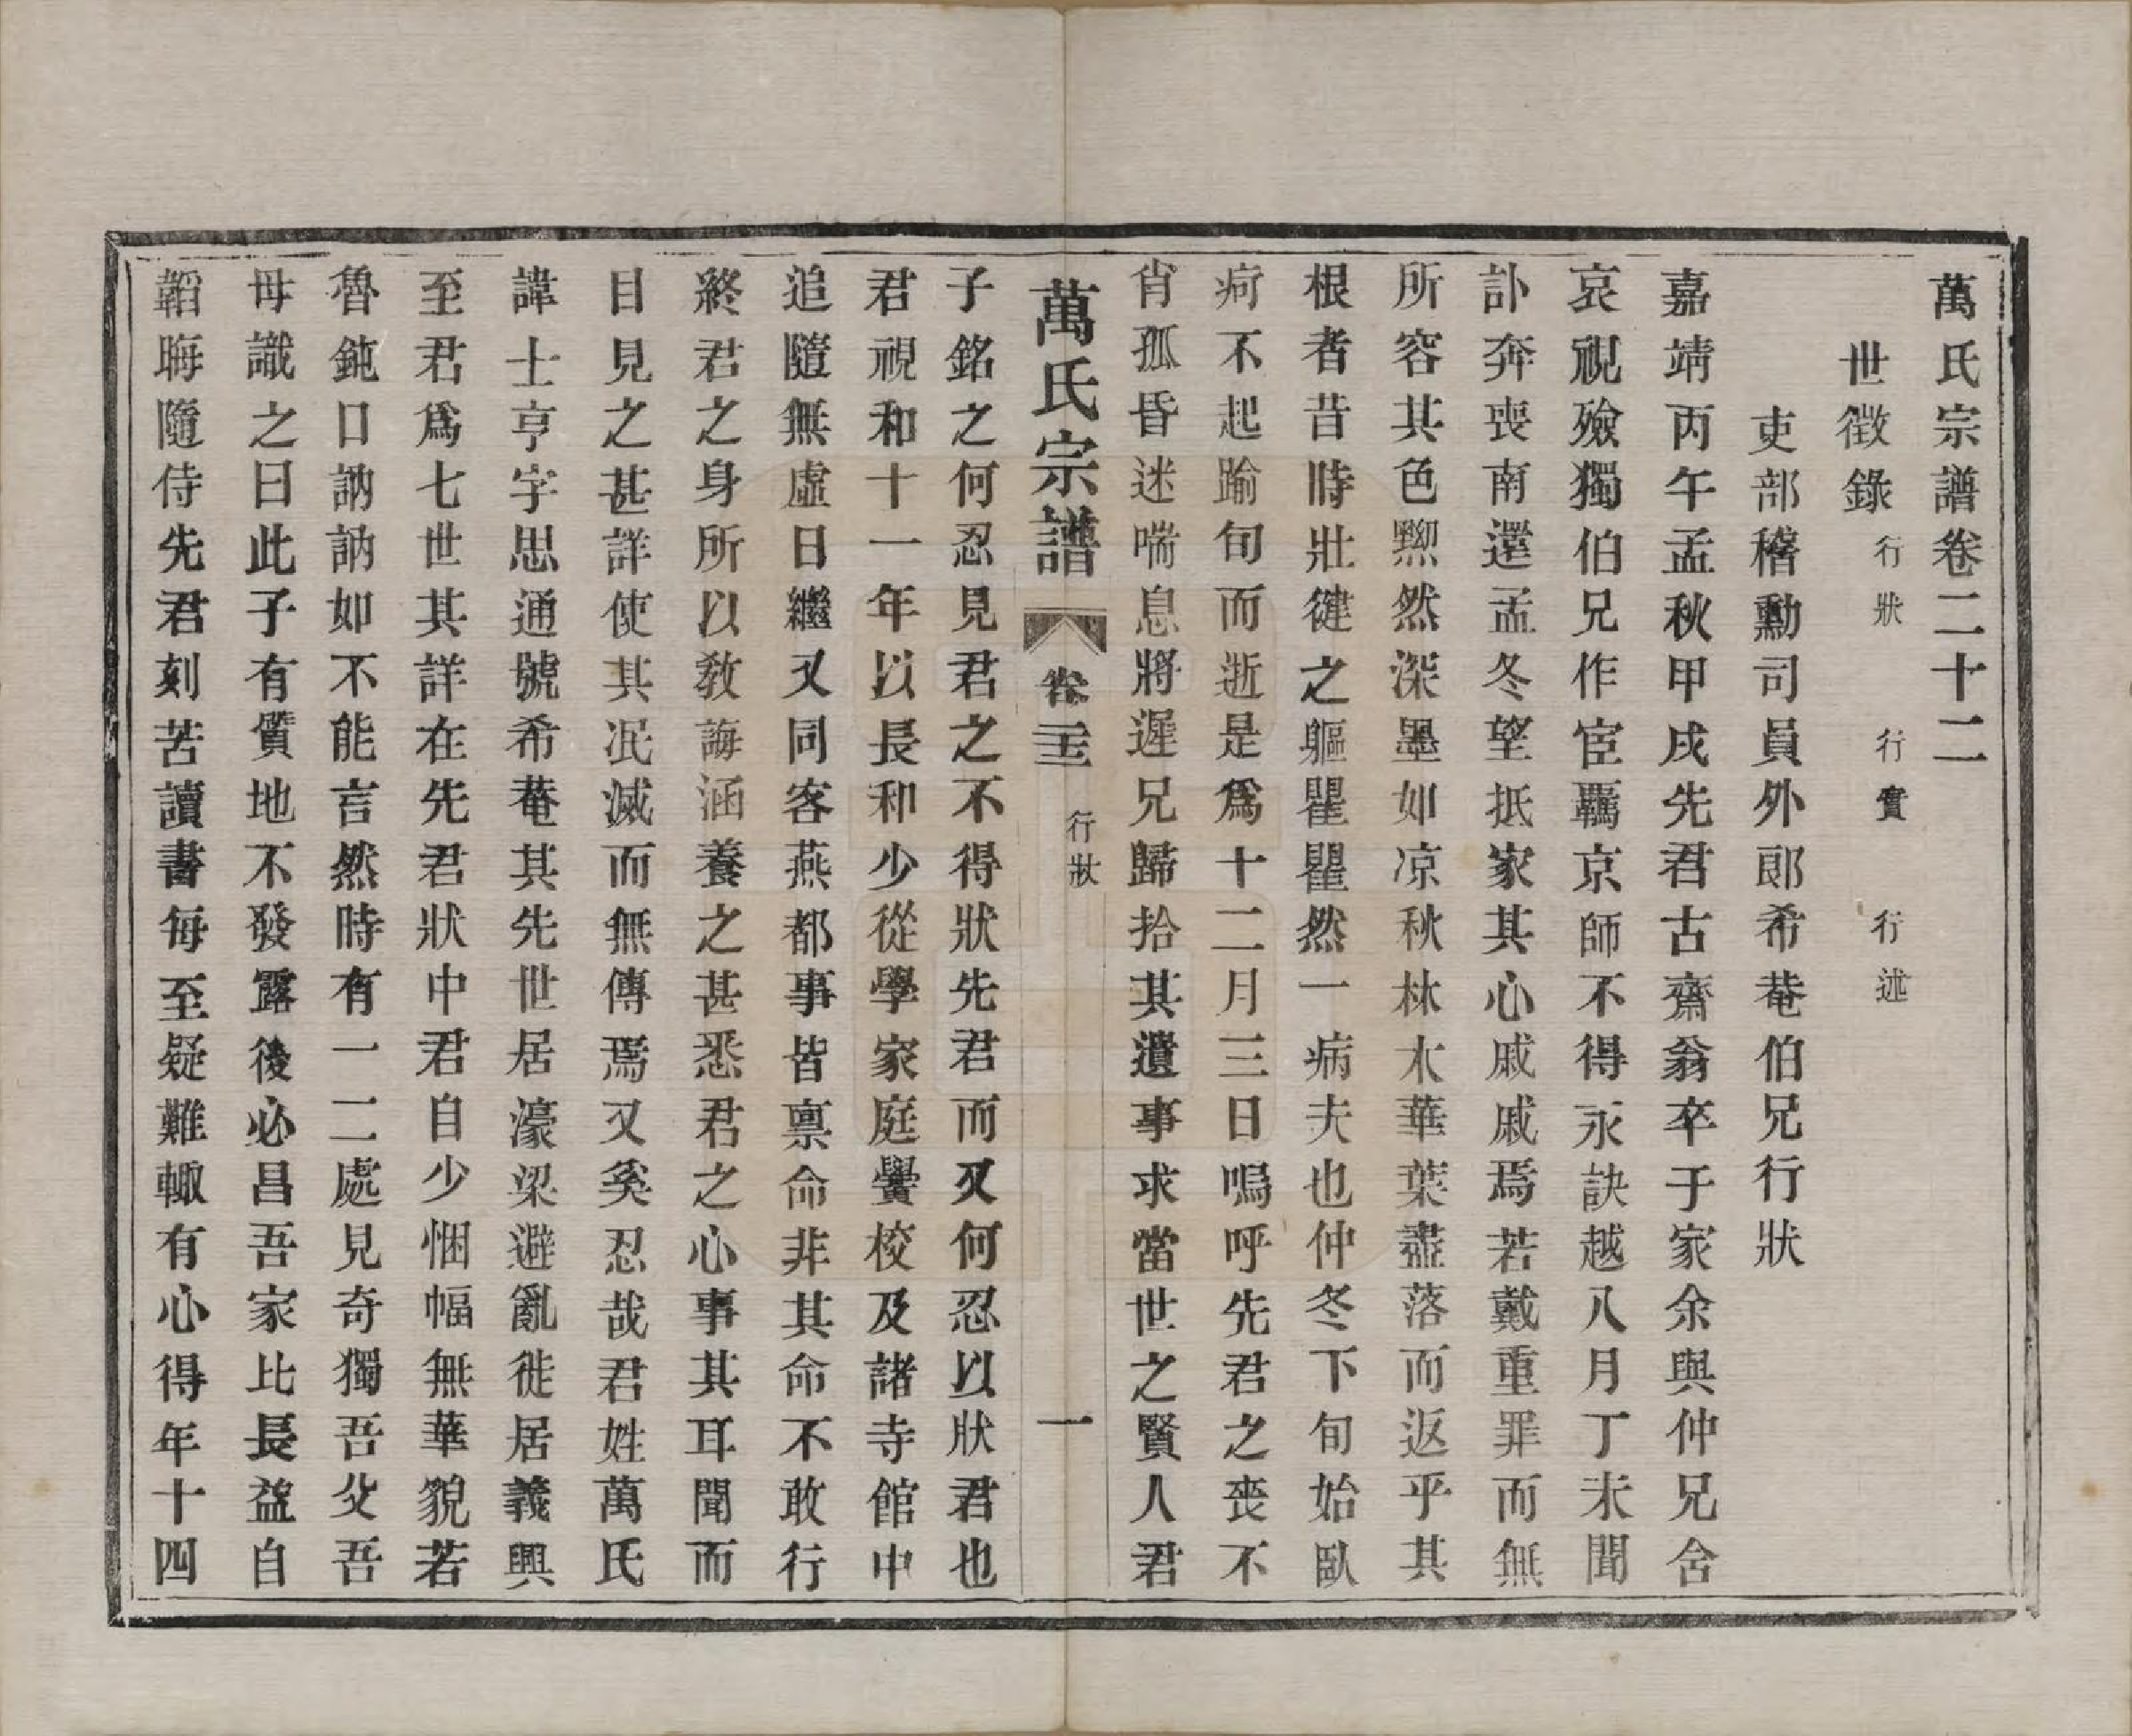 萬氏宗譜卷二十二
世徵錄 行狀 行實 行述
吏部稽勳司員外郎希菴伯兄行狀
嘉靖丙午孟秋甲戌先君古齋翁卒于家余與仲兄舍
哀視殮獨伯兄作宦羈京師不得永訣越八月丁未聞
訃奔喪南還孟冬望抵家其心戚戚焉若戴重罪而無
所容其色黝然深墨如凉秋林木華葉盡落而返乎其
根者昔時壯健之軀瞿瞿然一病夫也仲冬下旬始臥
疴不起踰旬而逝是爲十二月三日嗚呼先君之喪不
肖孤昏迷喘息將遲兄歸拾其遺事求當世之賢人君
萬氏宗譜 卷二十二 行狀 一
子銘之何忍見君之不得狀先君而又何忍以狀君也
君視和十一年以長和少從學家庭黌校及諸寺館中
追隨無虛日繼又同客燕都事皆禀命非其命不敢行
終君之身所以敎誨涵養之甚悉君之心事其耳聞而
目見之甚詳使其泯滅而無傳焉又奚忍哉君姓萬氏
諱士亨字思通號希菴其先世居濠梁避亂徙居義興
至君爲七世其詳在先君狀中君自少悃愊無華貌若
魯鈍口訥訥如不能言然時有一二處見奇獨吾父吾
母識之曰此子有質地不發露後必昌吾家比長益自
韜晦隨侍先君刻苦讀書每至疑難輙有心得年十四